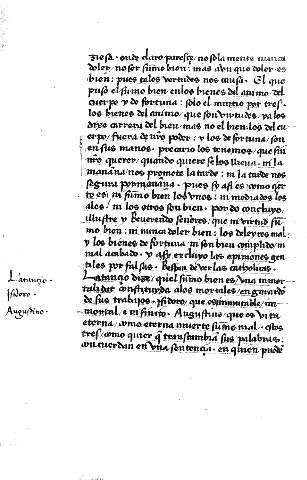 ziesa · onde claro paresçe no sola mente nunca
doler no ser sumo bien: mas avn que doler es
bien: pues tales vertudes nos causa. El que
puso el sumo bien en los bienes del animo del
cuerpo y de fortuna: solo el mintio por tres·
los bienes del animo, que son virtudes, ya los
dixe carrera del bien, mas no el bien: los del cu
erpo, fuera de nro poder: y los de fortuna, son
en sus manos · precario los tenemos, que sin
nro querer, quando quiere se los lleua · ni la
mañana nos promete la tarde: ni la tarde nos
segura
pues sy asi es como çier
to es; ni sumo bien los vnos: ni mediados los
ales: ni los otros son bien · por do concluyo,
illustre y Reuerendo señores, que ni virtud su
mo bien: ni nunca doler bien: los deleytes mal:
y los bienes de fortuna ni son bien complido, ni
mal acabado · y assy excluyo las opiniones gen
tiles por falsas · Restan de ver las catholicas.
Latançio
Latançio dize: quel sumo bien es vna inmor
talidat constituyda a los mortales, en
de sus trabajos · Isidoro, que es inmutable, in
Isidoro·
mortal, e infinito · Augustino, que es vita
Augustino·
eterna: como eterna muerte sumo mal · estos
tres, como quier q transtumban sus palabras:
concuerdan en vna sentençia, en quien puede